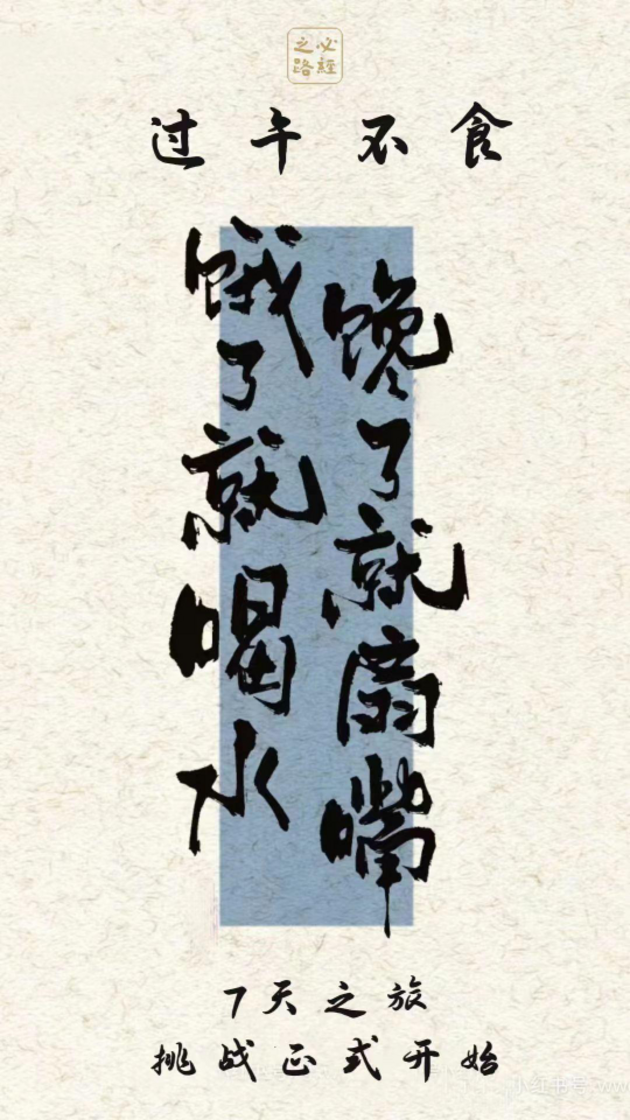 必經之路
过午不食
饿了就喝水
馋了就扇嘴
7天之旅
挑战正式开始
小红书号